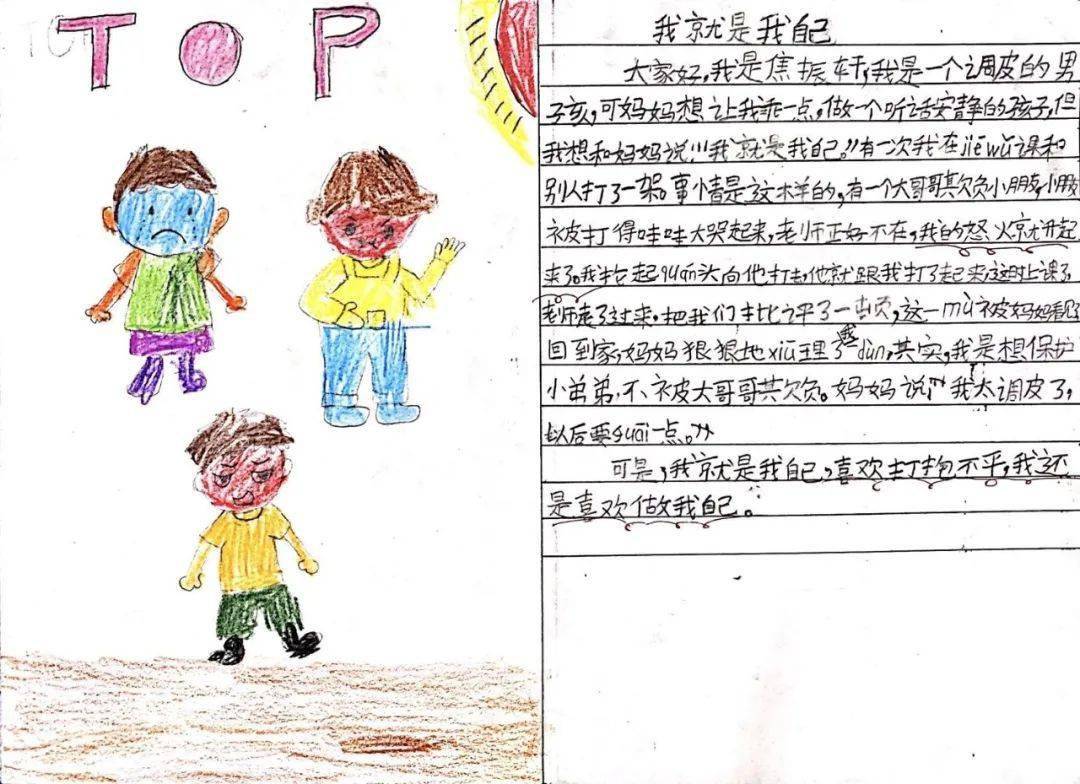 TOP
我就是我自己
大家好,我是焦振轩,我是一个调皮的男
子孩,可妈妈想让我乖一点,做一个听话安静的孩子,但
我想和妈妈说:"我就是我自己。"有一次我在jiē wǔ课和
别人打了一架。事情是这样的,有一个大哥哥欺负小朋友,小朋友
被打得哇哇大哭起来,老师正好不在,我的怒火就升起
来了。我抡起quán头向他打去,他就跟我打了起来,这时上课了,
老师走了过来,把我们批评了一顿,这一mù被妈妈看见了
回到家,妈妈狠狠地xiū理了我dùn,其实,我是想保护
小弟弟,不被大哥哥欺负。妈妈说:"我太调皮了,
以后要guāi一点。"
可是,我就是我自己,喜欢打抱不平,我还
是喜欢做我自己。